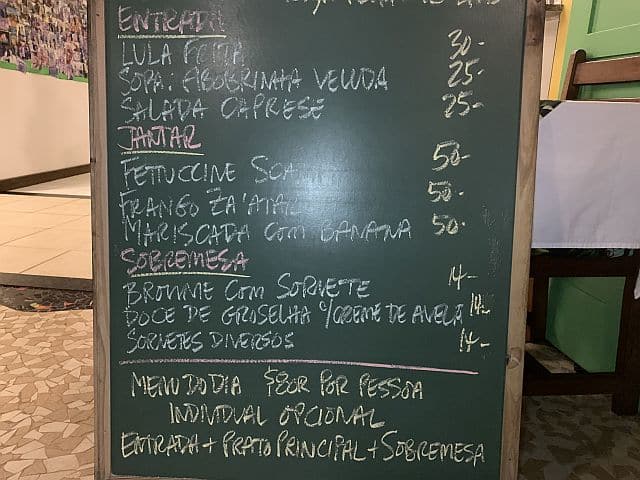 ENTRADA
LULA FRITA 30-
SOPA: ABOBRINHA VELUDA 25-
SALADA CAPRESE 25-
JANTAR
FETTUCCINE 50-
FRANGO ZA'ATAR 50-
MARISCADA COM BANANA 50-
SOBREMESA
BROWNIE COM SORVETE 14-
DOCE DE GRISELHA C/CREME DE AVELÃ 14-
SORVETES DIVERSOS 14-
MENU DO DIA $80R POR PESSOA
INDIVIDUAL OPCIONAL
ENTRADA + PRATO PRINCIPAL + SOBREMESA